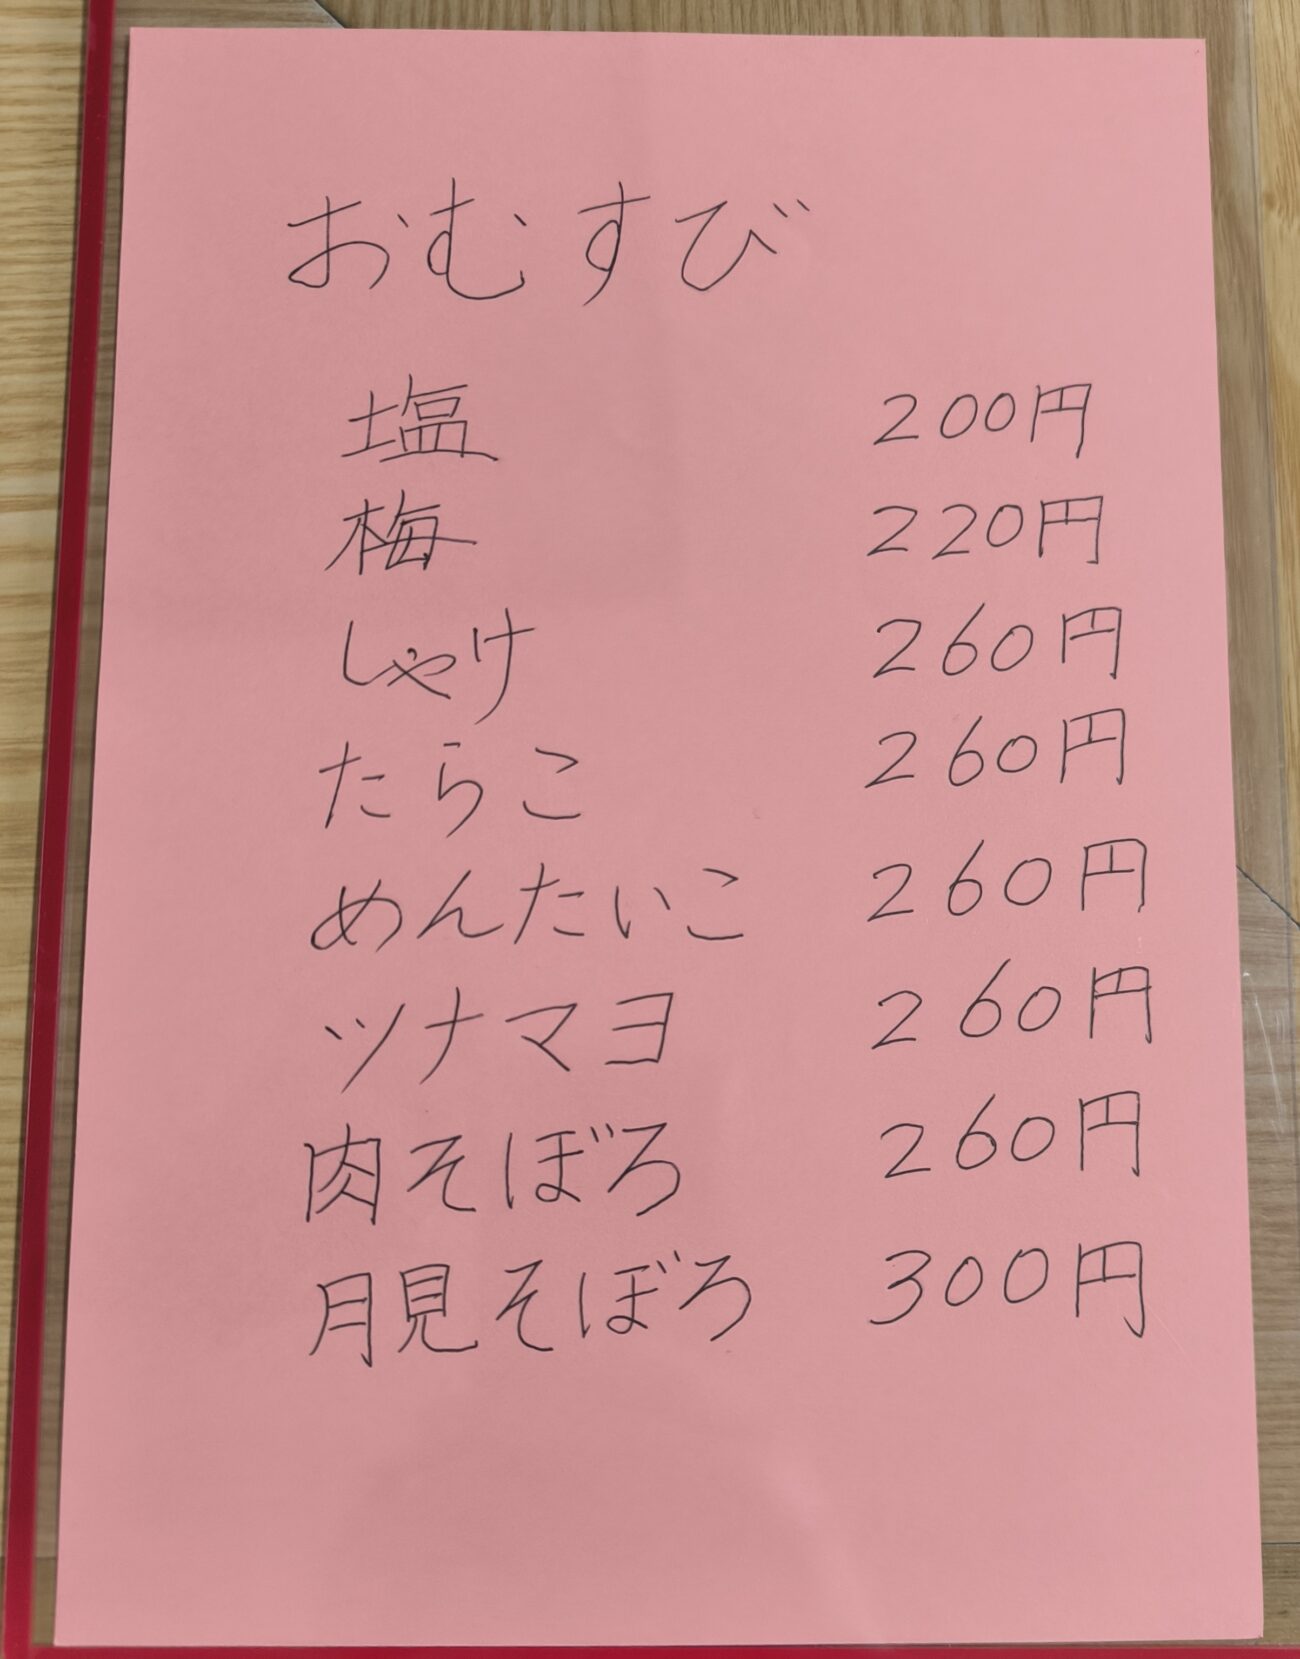 おむすび
塩 200円
梅 220円
しゃけ 260円
たらこ 260円
めんたいこ 260円
ツナマヨ 260円
肉そぼろ 260円
月見そぼろ 300円